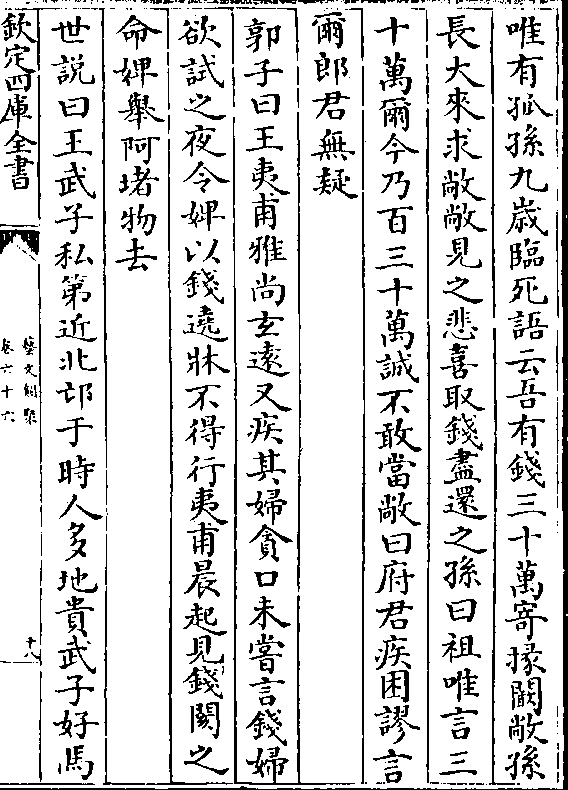 唯有孤孫九歳臨死語云吾有錢三十萬寄掾闞敞孫
長大來求敞敞見之悲喜取錢盡還之孫曰祖唯言三
十萬爾今乃百三十萬誠不敢當敞曰府君疾困謬言
爾郎君無疑
郭子曰王夷甫雅尚玄逺又疾其婦貪口未嘗言錢婦
欲試之夜令婢以錢遶牀不得行夷甫晨起見錢閡之
命婢舉阿堵物去
世說曰王武子私第近北邙于時人多地貴武子好馬
欽定四庫全書
藝文類聚
卷六十六
十八